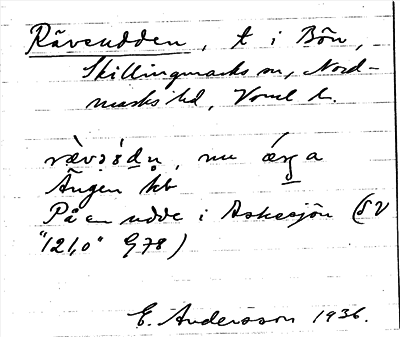 Rävudden, t i Bön,
Skillingmarks sn, Nord-
marks hd, Vrml l.
nu
Ängen
På en udde i Askesjön (SV
"121,0" G78)
E. Andersson 1936.